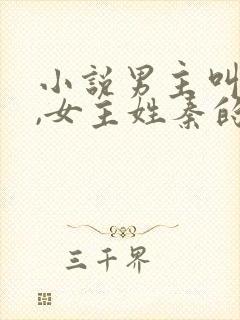 小説男主叫
,女主姓秦的
三千界